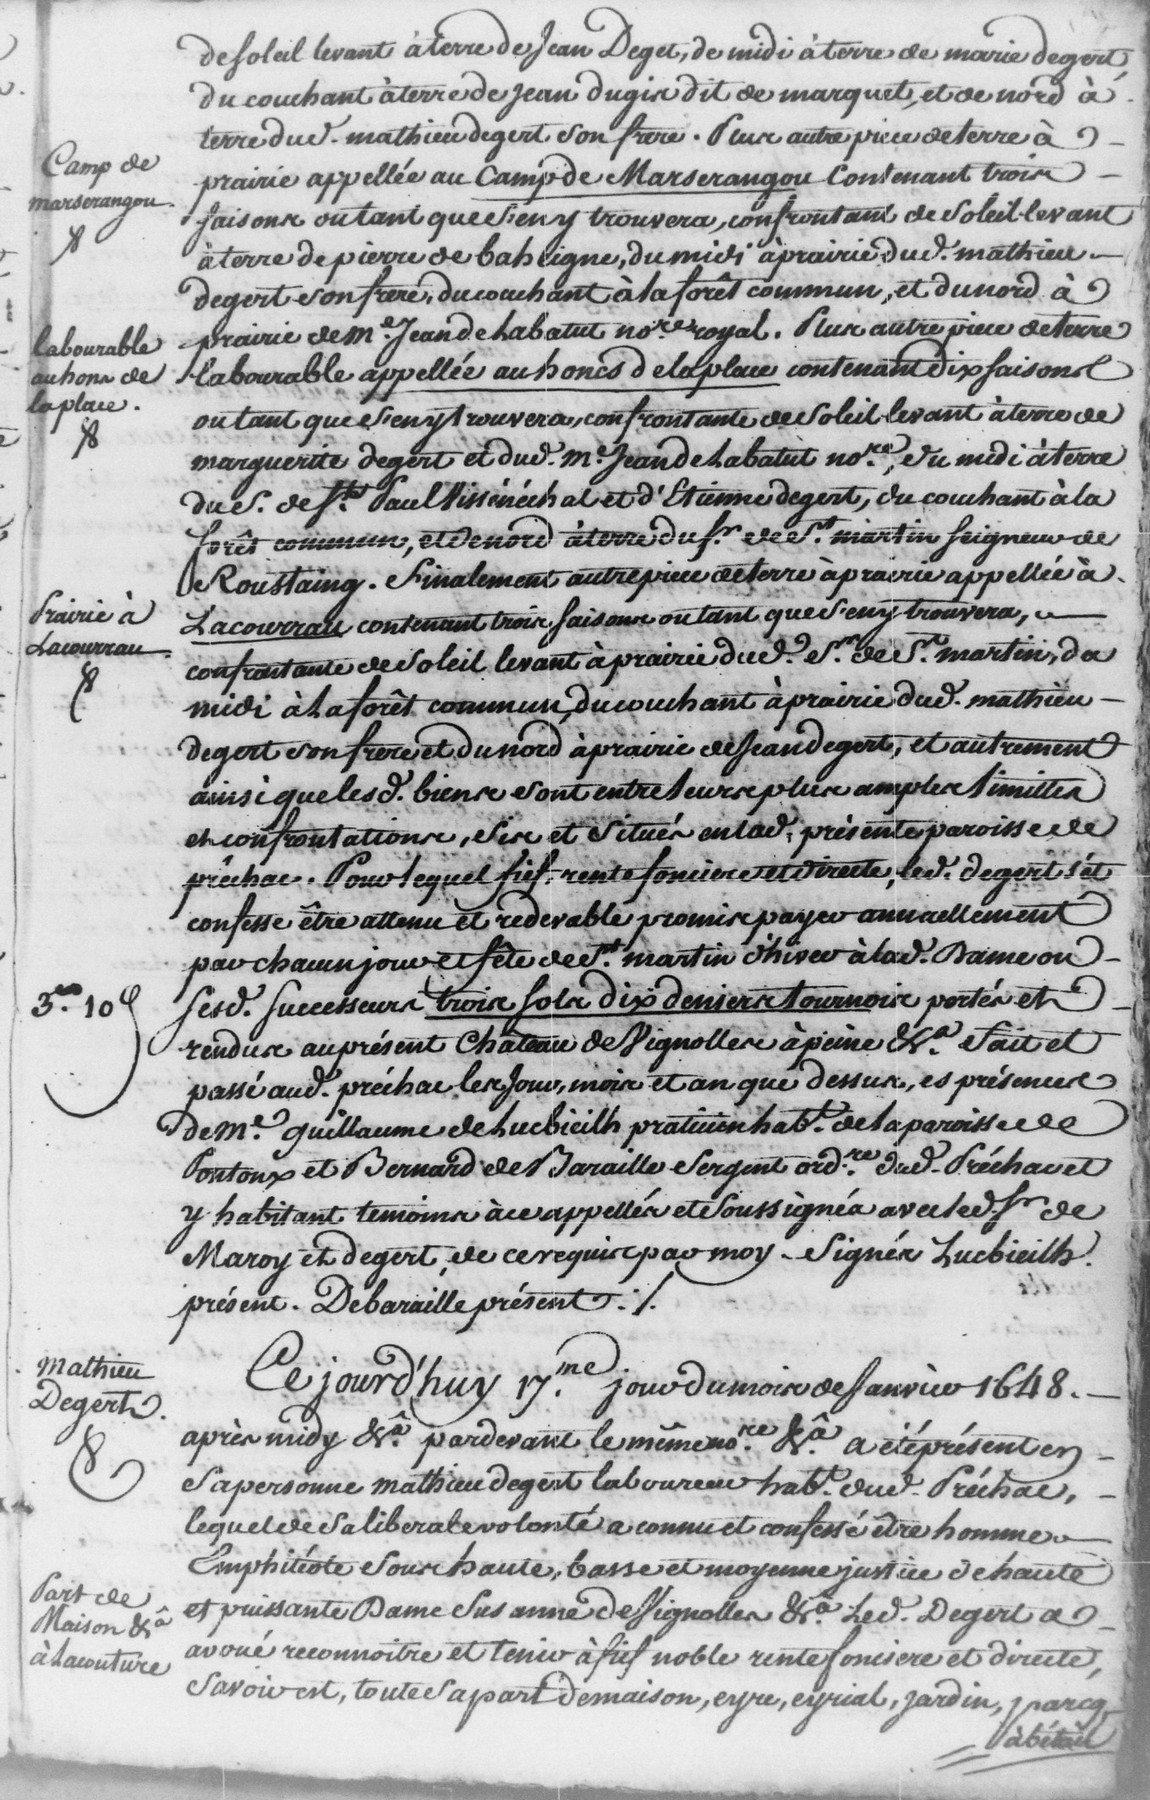 de soleil levant à terre de Jean Deget, de midi à terre de marie degert
du couchant à terre de Jean dugix dit de marquet, et de nord à
terre dud. mathieu degert son frere. Plus autre piece de terre à
Camp de
marserangou.
prairie appellée au Camp de Marserangou Contenant trois
saisons ou tant que s'en y trouvera, confrontant de soleil levant
à terre de pierre de bahligne, du midi à prairie dud. mathieu
degert son frere, du couchant à la forêt commun, et du nord à
prairie de Me. Jean de Labatut nore. royal. Plus autre piece de terre
labourable
au hons de
la place.
labourable appellée au honcs de la place contenant dix saisons
ou tant que s'en y trouvera, confrontante de soleil levant à terre de
marguerite degert et dud. Me. Jean de Labatut nore., du midi à terre
du S. de St. Paul Vissénéchal et d'Etienne degert, du couchant à la
forêt commun, et de nord à terre du sr. de St. martin seigneur de
Roustaing. Finalement autre piece de terre à prairie appellée à
Prairie à
Lacourrau
Lacourrau contenant trois saisons ou tant que s'en y trouvera,
confrontante de soleil levant à prairie dud. Sr. de St. martin, du
midi à la forêt commun, du couchant à prairie dud. mathieu
degert son frere et du nord à prairie de Jean degert, et autrement
ainsi que lesd. biens sont entre leurs plus amples limittes
et confrontations, sis et situés en lad. présente paroisse de
préchac. Pour lequel fief, rente fonciere et directe, led. degert s'ét
confesse être attenu et redevable promis payer annuellement
par chacun jour et fête de St. martin d'hiver à lad. Dame ou
3s. 10d
sesd. successeurs trois sols dix deniers tournois portés et
rendus au présent Château de Vignolles à peine &a. Fait et
passé aud. préchac les Jour, mois et an que dessus, es présences
de Me. guillaume de Lucbieilh praticien habt. de la paroisse de
Pontonx et Bernard de Baraille Sergent ordre. dud. Préchac et
y habitant temoins à ce appellés et soussignés avec led. sr. de
Maroy et degert, de ce requis par moy. Signés Lucbieilh
présent. Debaraille présent ./.
Mathieu
Degert.
Ce jourd'huy 17.me jour du mois de Janvier 1648.
après midy &a. pardevant le même nore. &a. a été présent en
sa personne mathieu degert laboureur habt. dud. Préchac,
lequel de sa liberale volonté a connu et confessé être homme
Emphitéote sous haute, basse et moyenne justice de haute
Part de
Maison &a
à Lacouture
et puissante Dame Susanne de Vignolles &a. Led. Degert a
avoué reconnoitre et tenir à fief noble rente fonciere et directe,
Savoir est, toute sa part de maison, eyre, eyrial, jardin, parcq
à bétail